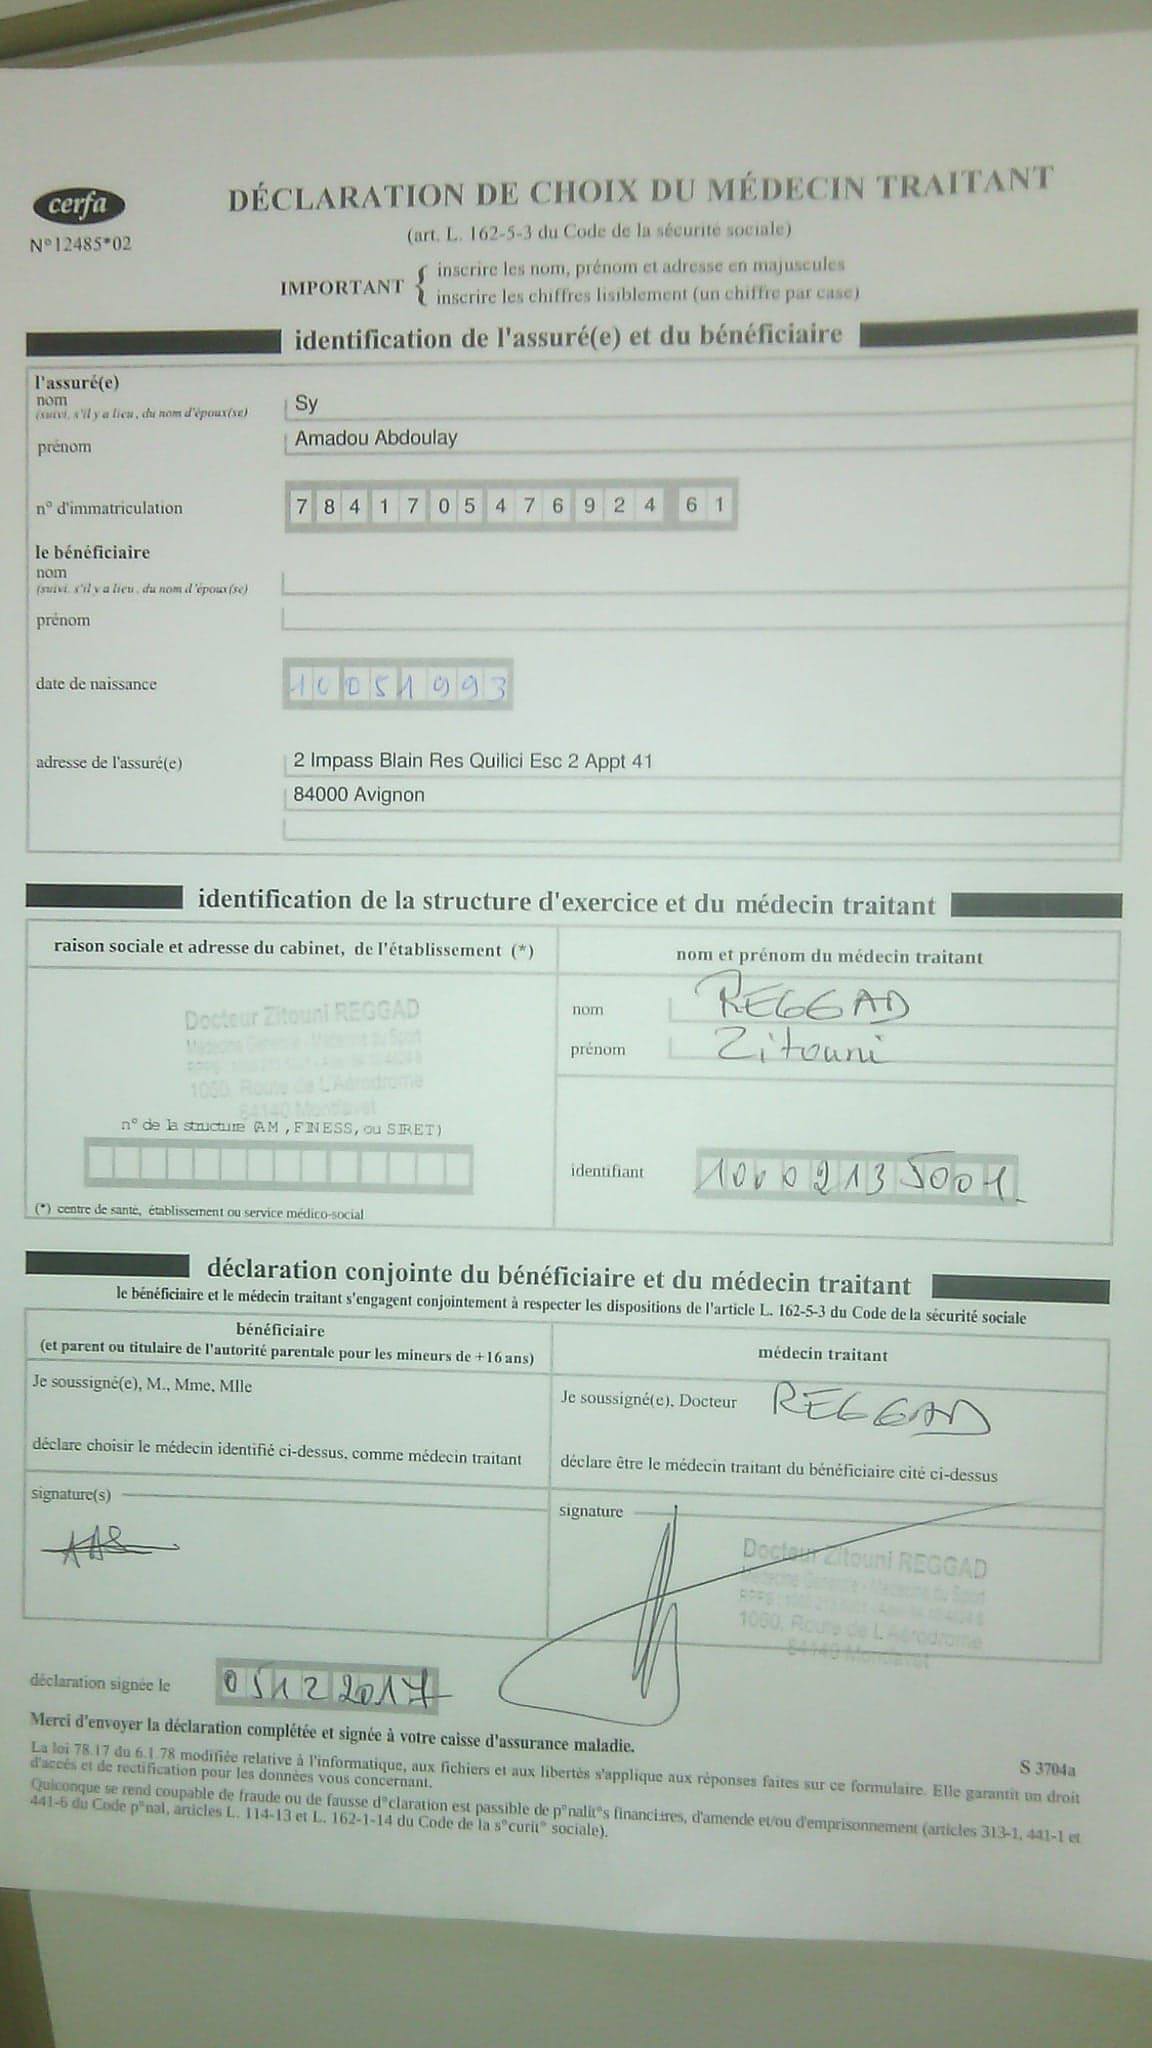 cerfa
N°12485*02
DÉCLARATION DE CHOIX DU MÉDECIN TRAITANT
(art. L. 162-5-3 du Code de la sécurité sociale)
IMPORTANT { inscrire les nom, prénom et adresse en majuscules
inscrire les chiffres lisiblement (un chiffre par case)
identification de l'assuré(e) et du bénéficiaire
l'assuré(e)
nom
(suivi, s'il y a lieu, du nom d'époux(se)
Sy
prénom
Amadou Abdoulay
n° d'immatriculation
7 8 4 1 7 0 5 4 7 6 9 2 4 6 1
le bénéficiaire
nom
(suivi, s'il y a lieu, du nom d'époux(se)
prénom
date de naissance
10051993
adresse de l'assuré(e)
2 Impass Blain Res Quilici Esc 2 Appt 41
84000 Avignon
identification de la structure d'exercice et du médecin traitant
raison sociale et adresse du cabinet, de l'établissement (*)
nom et prénom du médecin traitant
Docteur Zitouni REGGAD
Médecine Générale - Médecine du Sport
1060, Route de L'Aérodrome
84140 Montfavet
nom
REGGAD
prénom
Zitouni
n° de la structure (AM, FINESS, ou SIRET)
identifiant
10002135001
(*) centre de santé, établissement ou service médico-social
déclaration conjointe du bénéficiaire et du médecin traitant
le bénéficiaire et le médecin traitant s'engagent conjointement à respecter les dispositions de l'article L. 162-5-3 du Code de la sécurité sociale
bénéficiaire
(et parent ou titulaire de l'autorité parentale pour les mineurs de +16 ans)
médecin traitant
Je soussigné(e), M., Mme, Mlle
Je soussigné(e), Docteur REGGAD
déclare choisir le médecin identifié ci-dessus, comme médecin traitant
déclare être le médecin traitant du bénéficiaire cité ci-dessus
signature(s)
signature
AAS
Docteur Zitouni REGGAD
Médecine Générale - Médecine du Sport
1060, Route de L'Aérodrome
84140 Montfavet
déclaration signée le
05122017
Merci d'envoyer la déclaration complétée et signée à votre caisse d'assurance maladie.
S 3704a
La loi 78.17 du 6.1.78 modifiée relative à l'informatique, aux fichiers et aux libertés s'applique aux réponses faites sur ce formulaire. Elle garantit un droit
d'accès et de rectification pour les données vous concernant.
Quiconque se rend coupable de fraude ou de fausse d°claration est passible de p°nalit°s financi±res, d'amende et/ou d'emprisonnement (articles 313-1, 441-1 et
441-6 du Code p°nal, articles L. 114-13 et L. 162-1-14 du Code de la s°curit° sociale).